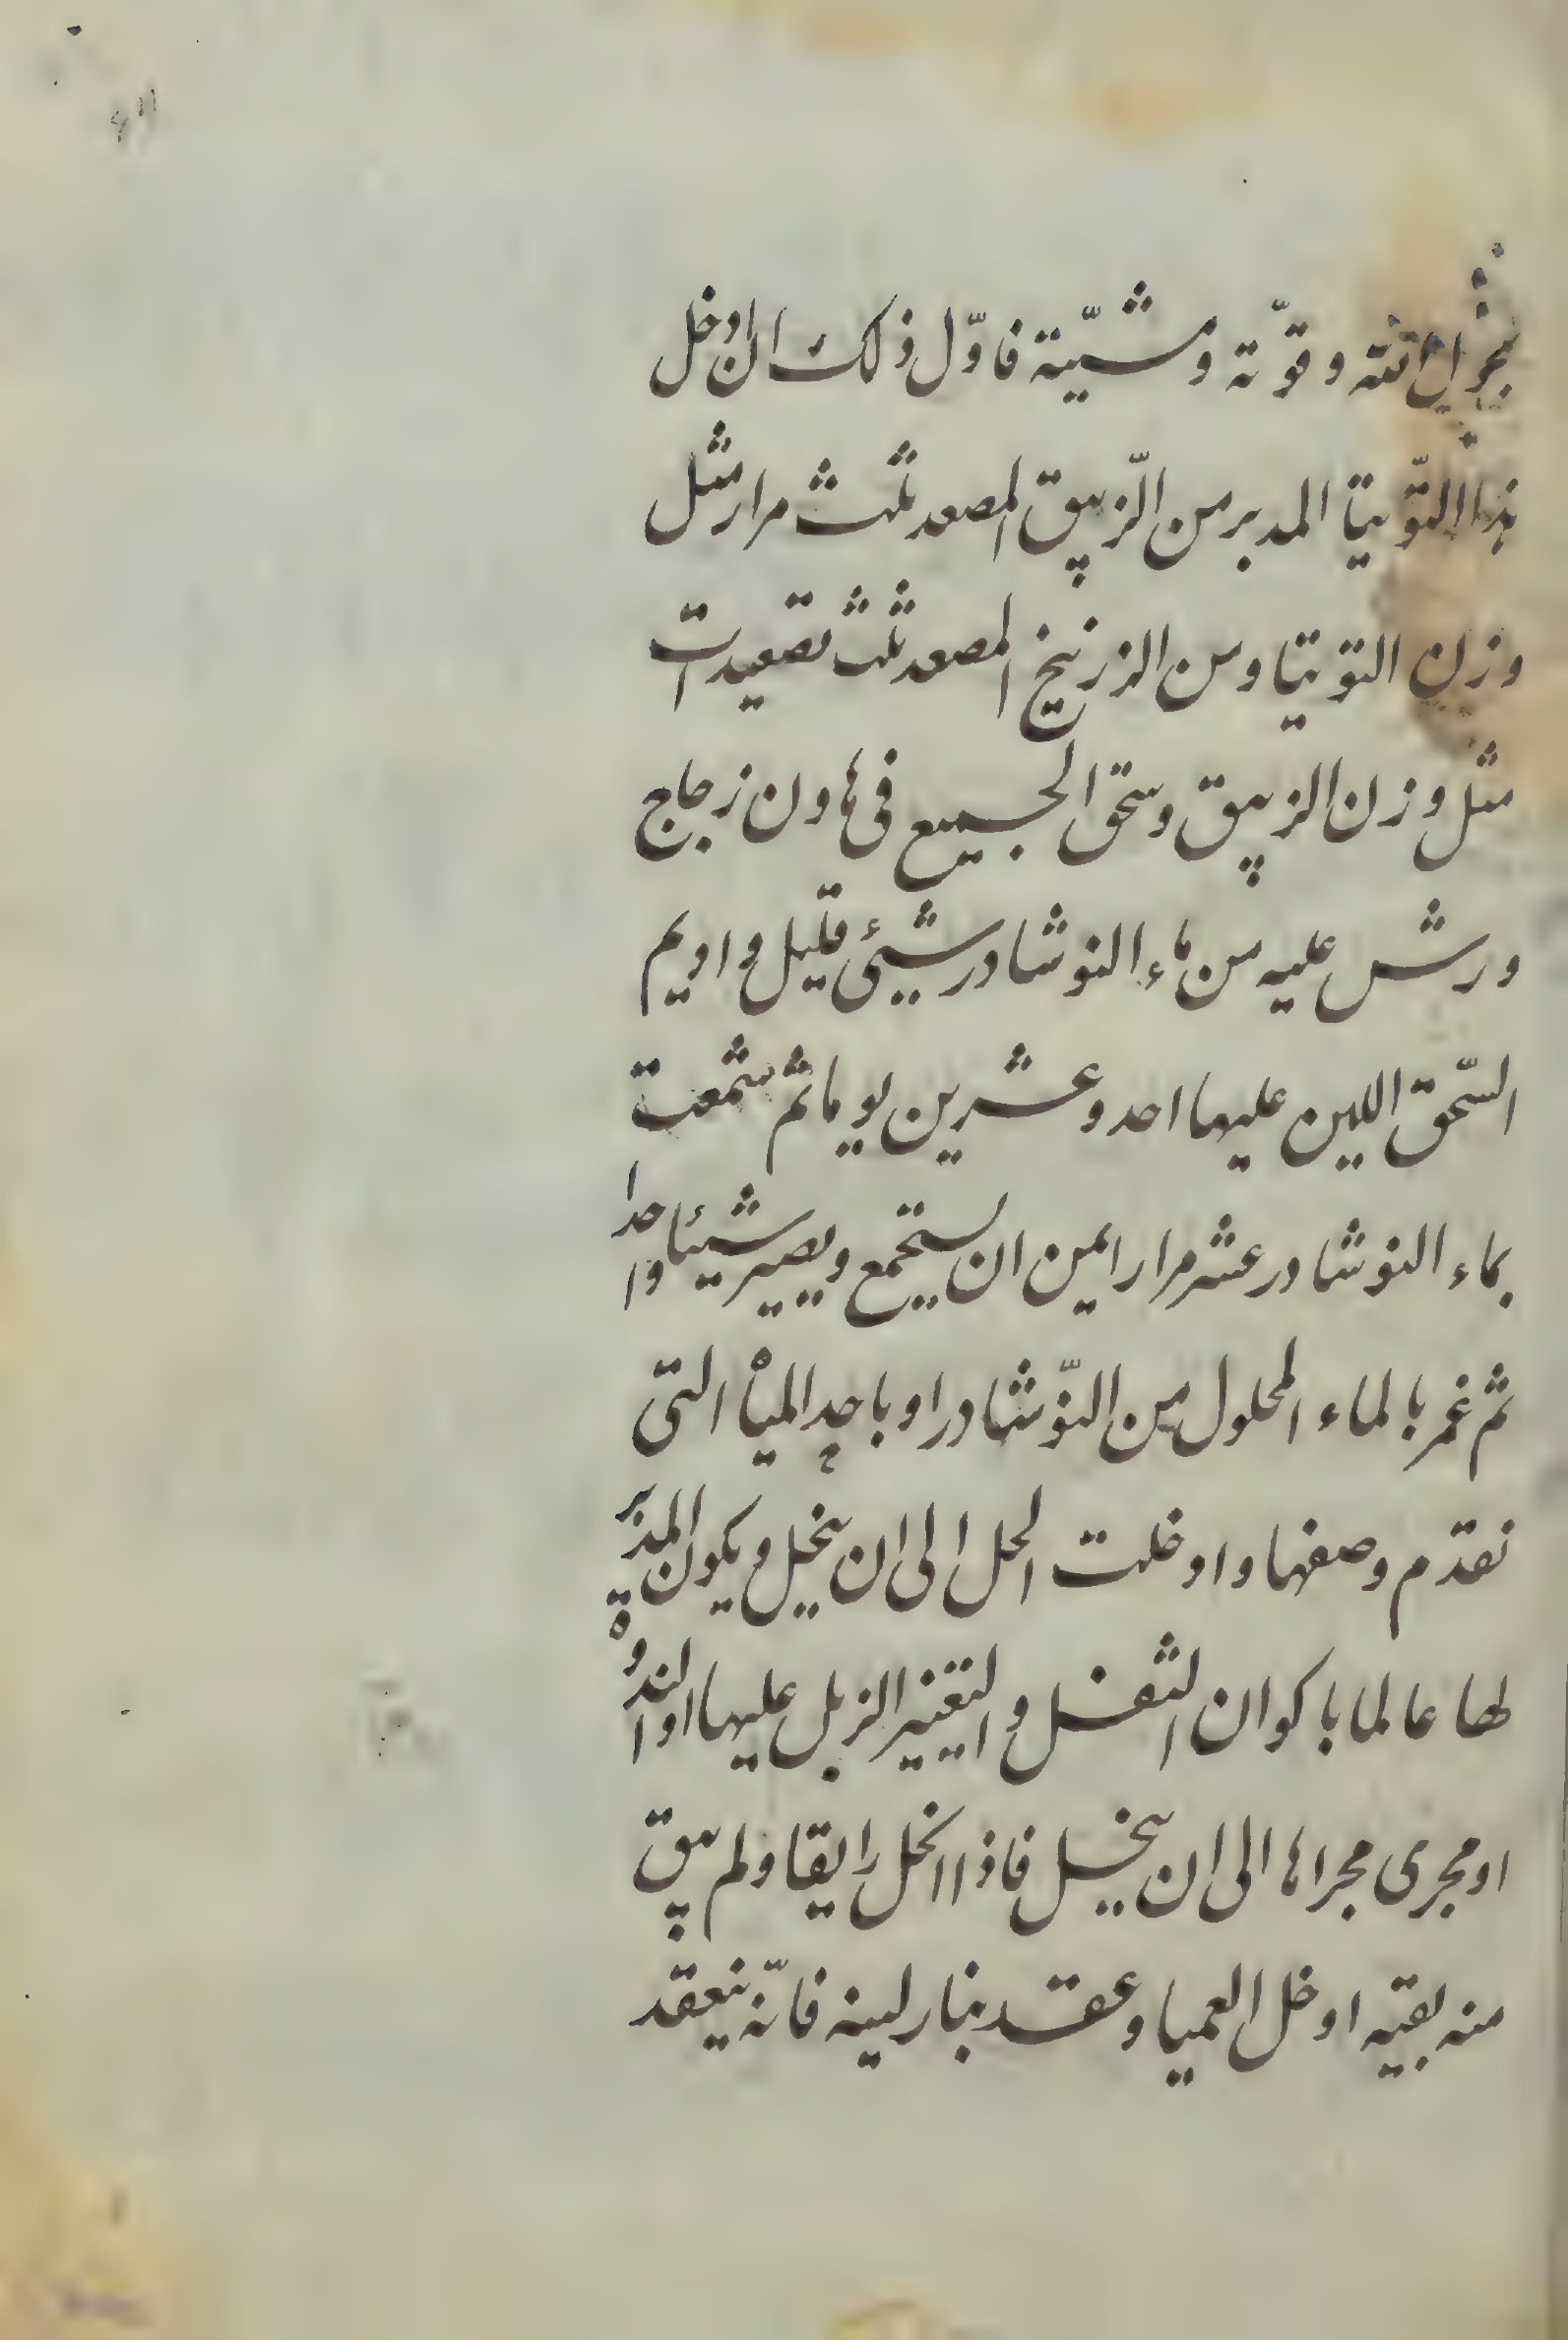 وقوّته ومشيّته فاوّل ذلك ان ادخل
هذا التّوتيا المدبر من الزّيبق المصعد ثلث مرار مثل
وزن التوتيا ومن الزرنيخ المصعد ثلث تصعيدات
مثل وزن الزيبق وسحق الجميع فى هاون زجاج
ورش عليه من ماء النوشادر شيئ قليل واديم
السّحق اللين عليها احد وعشرين يوما ثم شمعت
بماء النوشادر عشر مرار الى ان يستجمع ويصير شيئا واحدا
ثم غمر بالماء المحلول من النّوشادر او باحد المياه التى
تقدّم وصفها وادخلت الحل الى ان ينحل ويكون المدبّر
لها عالما باكوان الثفل والتغيير الزبل عليها او النداوة
او مجرى مجراها الى ان ينحل فاذا انحل رايقا ولم يبق
منه بقيه ادخل العميا وعقد بنار لينه فانّه ينعقد